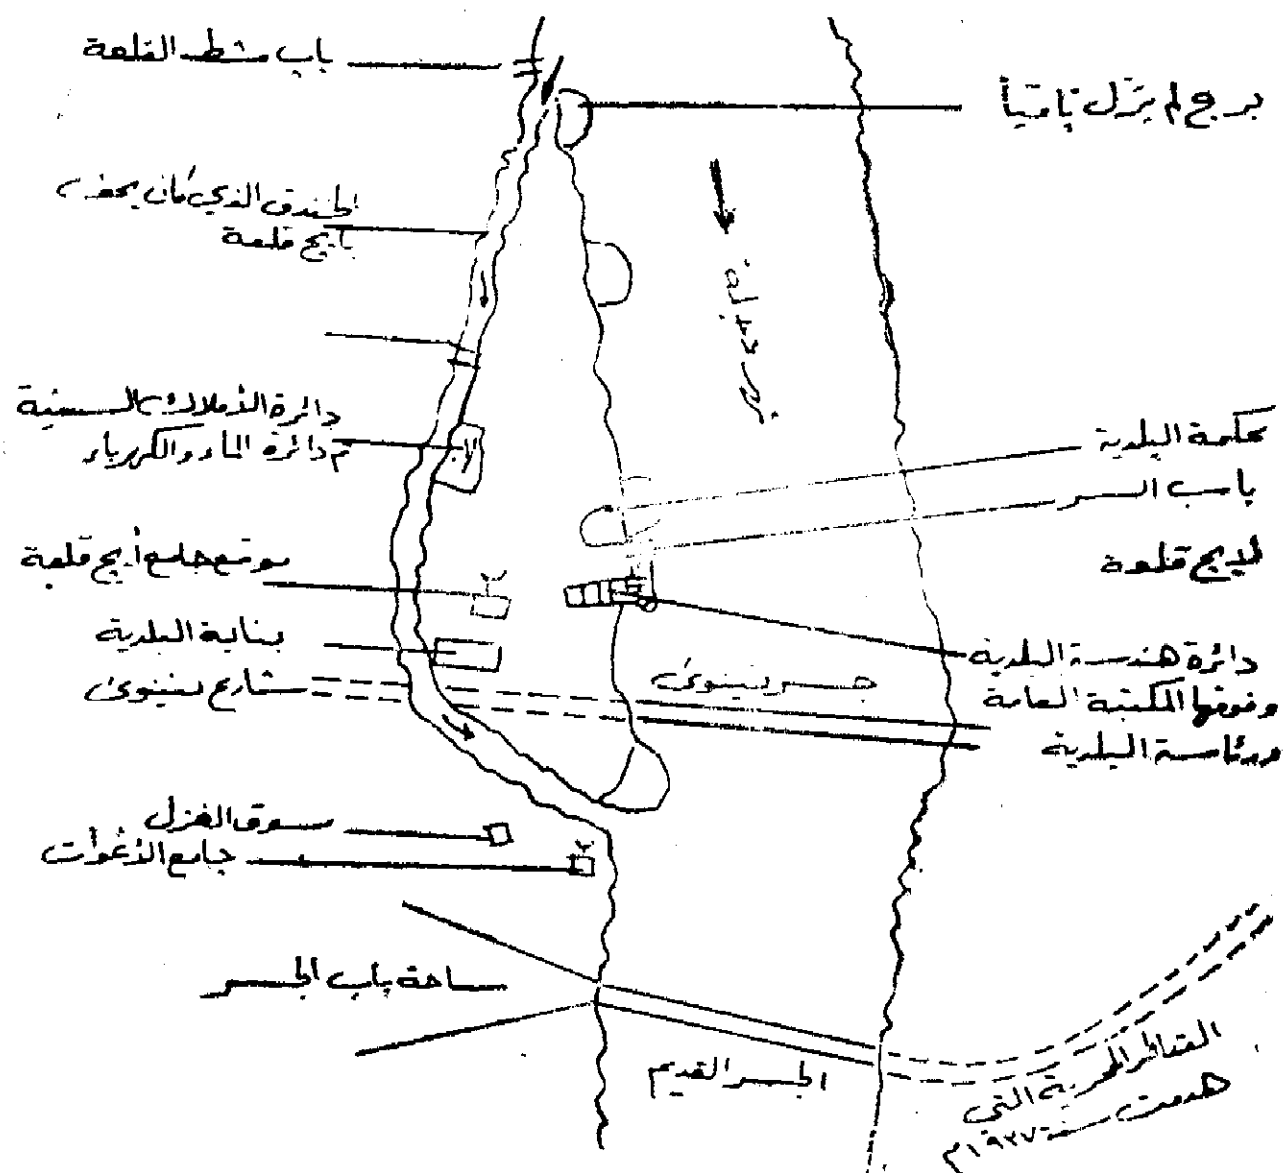 باب شط القلعة
برج لم يزل باقياً
الخندق الذي كان يحف بـ
بأيج قلعة
نهر دجلة
دائرة الأملاك السنية
ثم دائرة الماء والكهرباء
محكمة البلدية
باب السر
لايج قلعة
موقع جامع أيج قلعة
بناية البلدية
شارع نينوى
جسر نينوى
دائرة هندسة البلدية
وفوقها المكتبة العامة
ورئاسة البلدية
سوق الغزل
جامع الأغوات
ساحة باب الجسر
الجسر القديم
القناطر الحجرية التي
هدمت سنة ١٩٢٧م